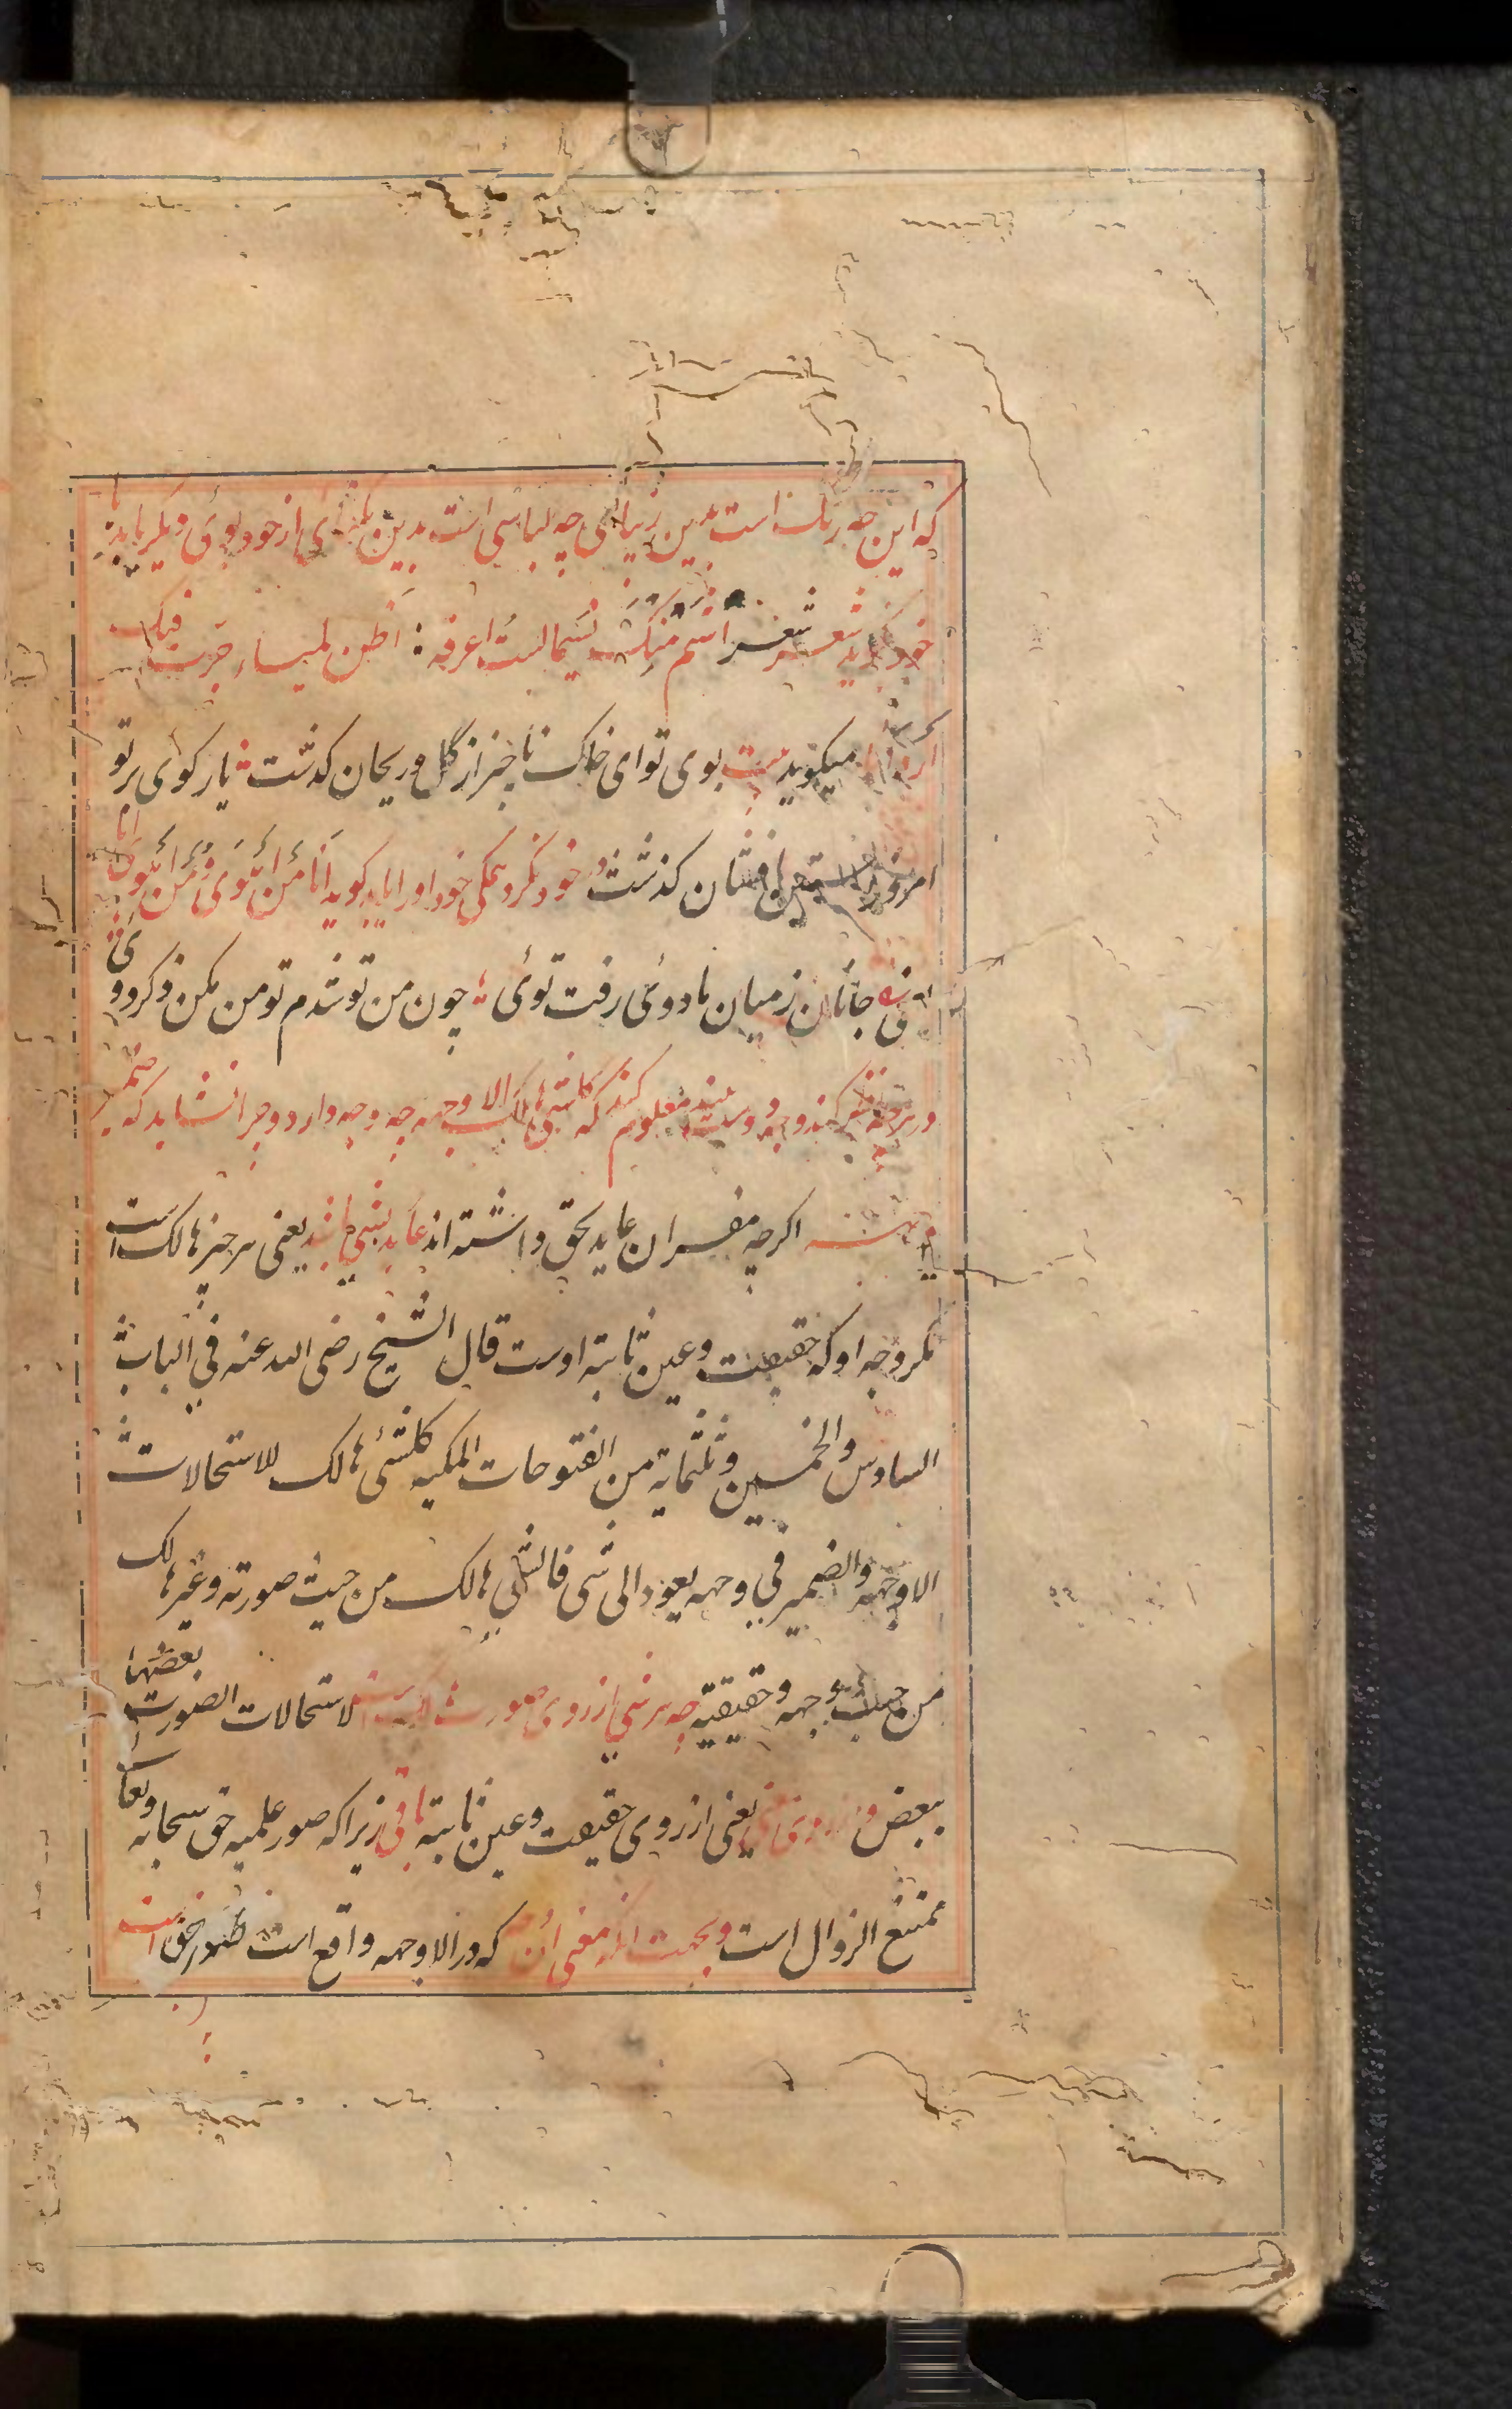 که این چه رنک است بدین زیبائی چه لباسی است بدین یکتائی از خود بوی دیکر یابد با
خود کوید شعر اشم منک نسیما لست اعرفه : اظن لمیاء جرت فیک
اردانا میکوید بیت بوی تو ای خاک ناچیز از گل و ریحان کذشت یار کوی بر تو
امروز افشان کذشت در خود نکرد همکی خود او را یابد کوید انا من اهوی و من اهوی انا
جانان ز میان ما دوئی رفت توئی چون من تو شدم تو من مکن ذکر دوی
در هر چه نظر کند وجه دوست بیند معلوم کند که کلشی هالک الا وجهه چه وجه دارد و چرا نشاید که ضمیر
وجهه اکرچه مفسران عاید بحق داشته اند عاید بشی باشد یعنی هر چیز هالک است
مکر وجه او که حقیقت و عین ثابته اوست قال الشیخ رضی الله عنه فی الباب
السادس والخمسین و ثلثمایة من الفتوحات المکیه کلشئ هالک للاستحالات
الا وجهه والضمیر فی وجهه یعود الی شی فالشی هالک من حیث صورته و غیر هالک
من حیث وجهه و حقیقیته چه هر شی از روی صورت هالکست لاستحالات الصورة بعضها
ببعض و از روی معنی یعنی از روی حقیقت و عین ثابته باقی زیراکه صور علمیه حق سبحانه و تعا
ممتنع الزوال است و بجهت انکه معنی ان که در الا وجهه واقع است ظهور حق است